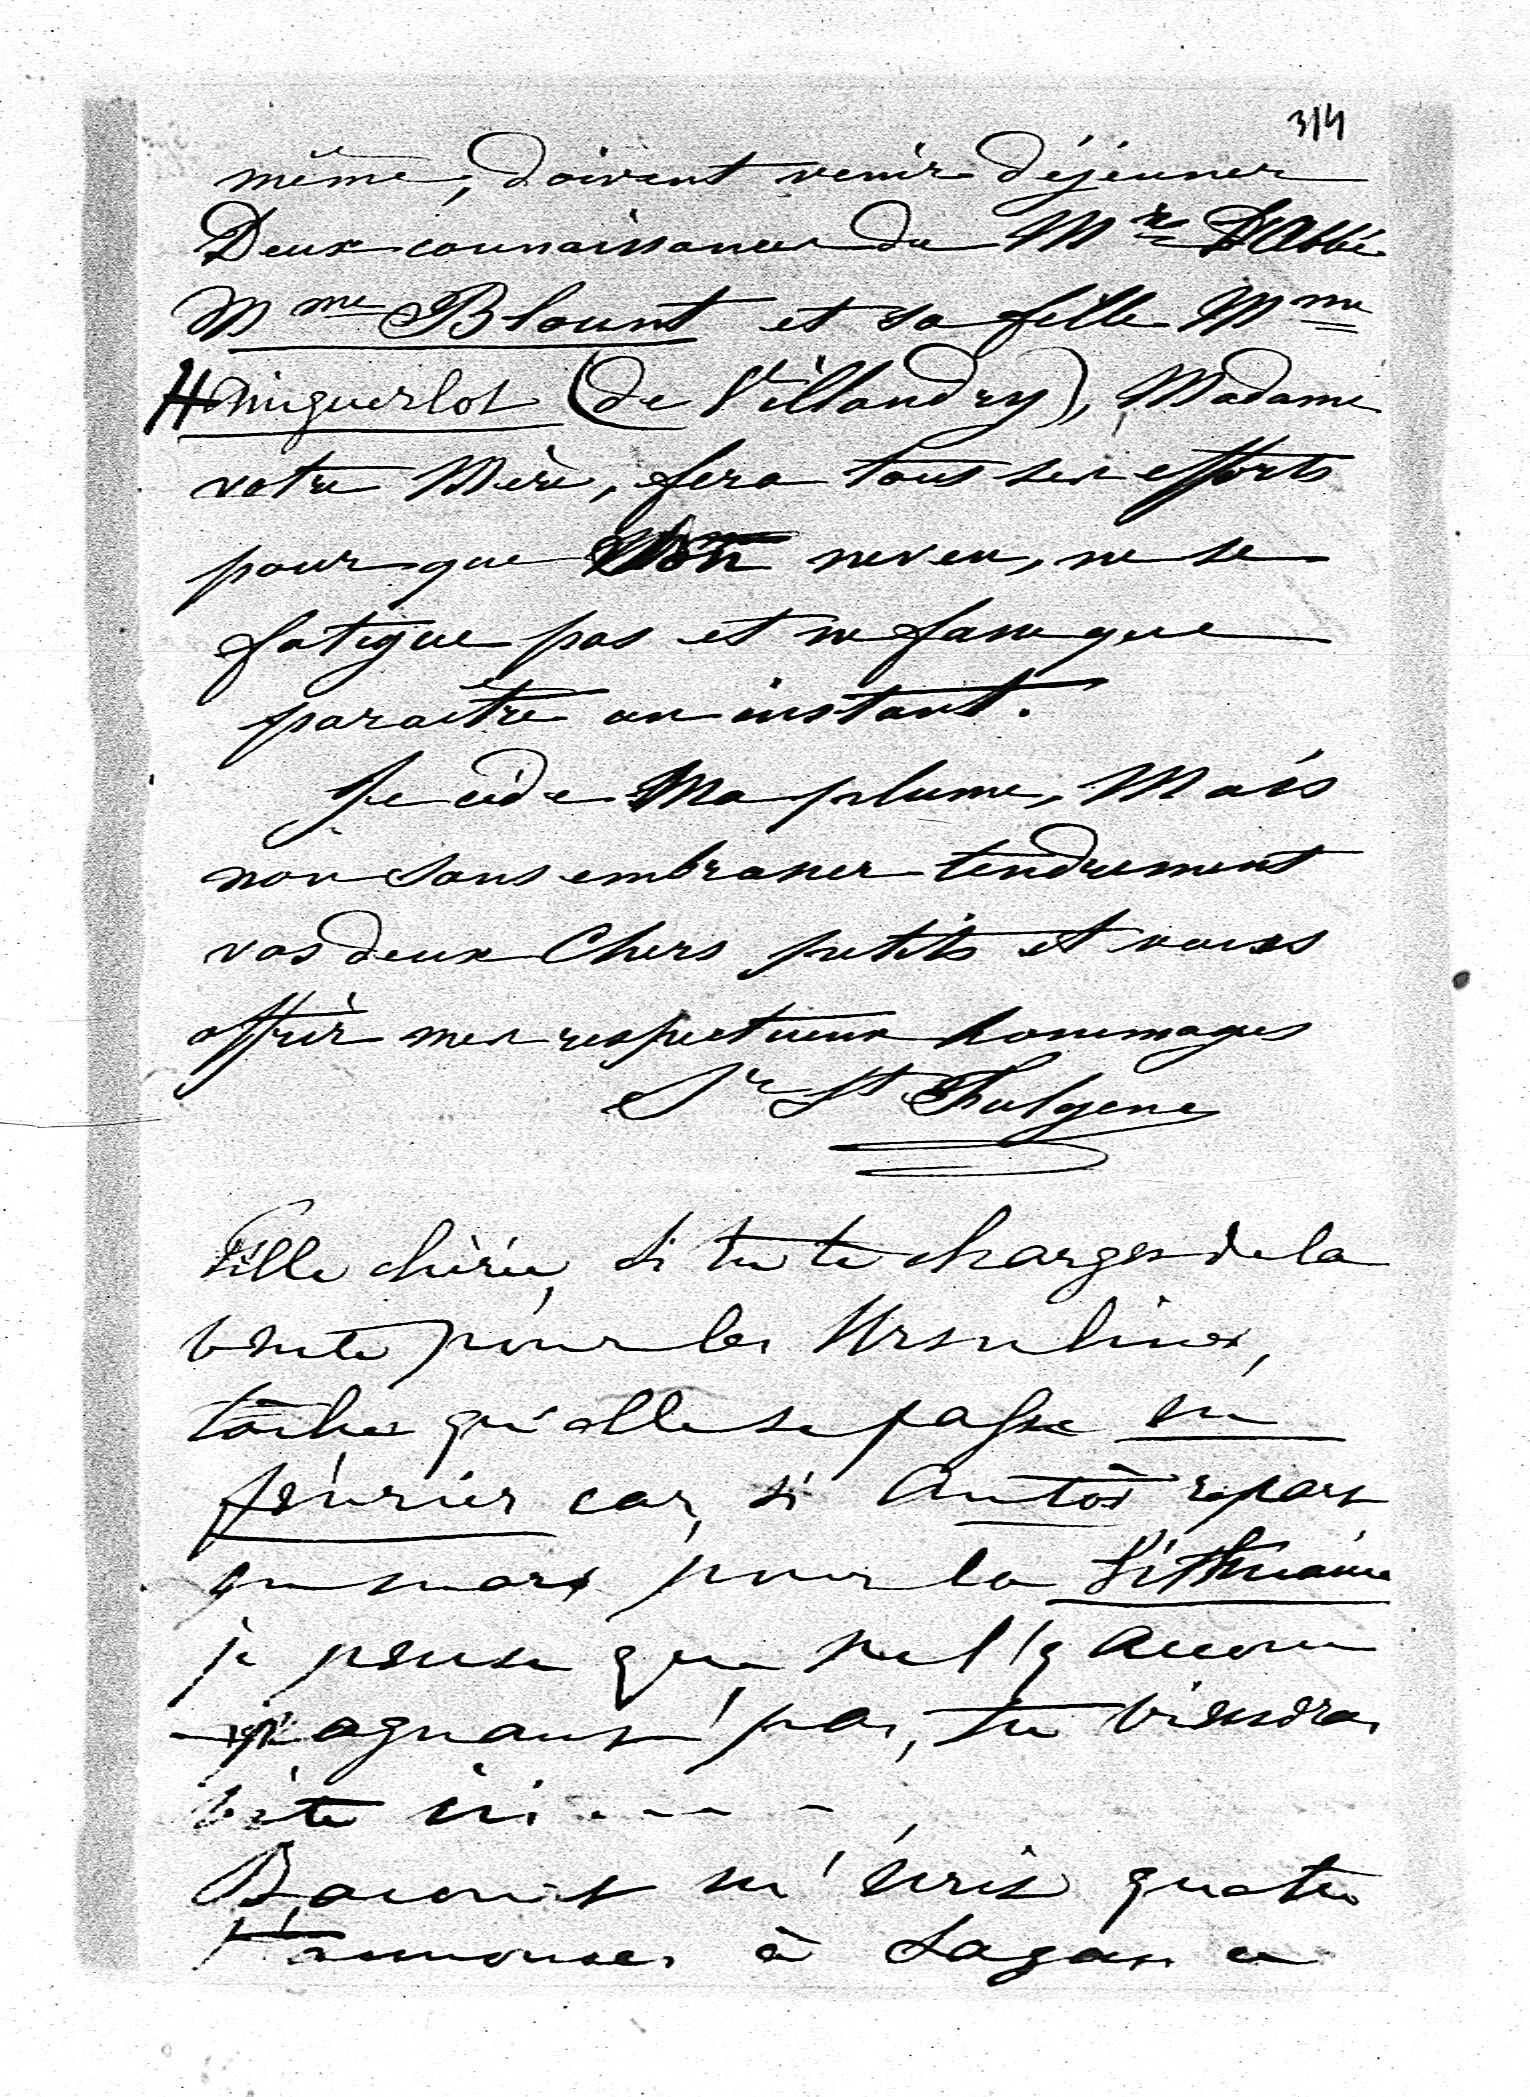 314
même, doivent venir déjeuner
Deux connaissances de Mr L'Abbé
Mme Blount et sa fille Mme
Hainguerlot (de Villandry), Madame
votre Mère, fera tous ses efforts
pour que Mon neveu, ne se
fatigue pas et ne fasse que
paraître un instant.
Je cède Ma plume, Mais
non sans embrasser tendrement
vos deux Chers petits et vous
offrir mes respectueux hommages
Sr St Fulgence
Fille chérie, si tu te charges de la
vente pour les Ursulines,
tâches qu'elle se passe en
février car, si Antos repart
en mars pour la Lithuanie
je pense que ne l'y accom
pagnant pas, tu viendras
vite ici . - - -
Bacourt m'écrit quatre
à Sagan